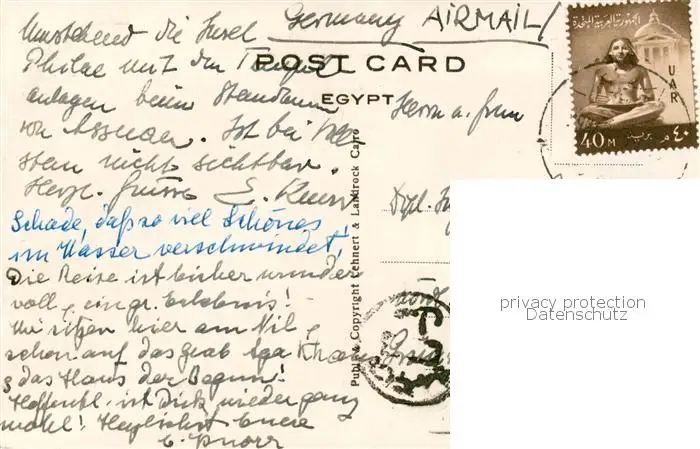 Umstehend die Insel
Philae mit den Tempel
anlagen beim Staudamm
von Assuan. Ist bei
nicht sichtbar.
Herzl. Grüsse E. Knorr
Schade, daß so viel Schönes
im Wasser verschwindet!
Die Reise ist bisher wunder
voll, ein gr. Erlebnis!
Wir sitzen hier am Nil,
sehen auf das Grab Aga Khans
& das Haus der Begum!
Hoffentl. ist Dick wieder ganz
wohl! Herzlichst Eure
E. Knorr
Germany AIRMAIL/
POST CARD
EGYPT
Publ & Copyright Lehnert & Landrock Cairo
Herrn u. Frau
Dipl.
الجمهورية العربية المتحدة
UAR
40 M بريد ٤٠ م
privacy protection
Datenschutz